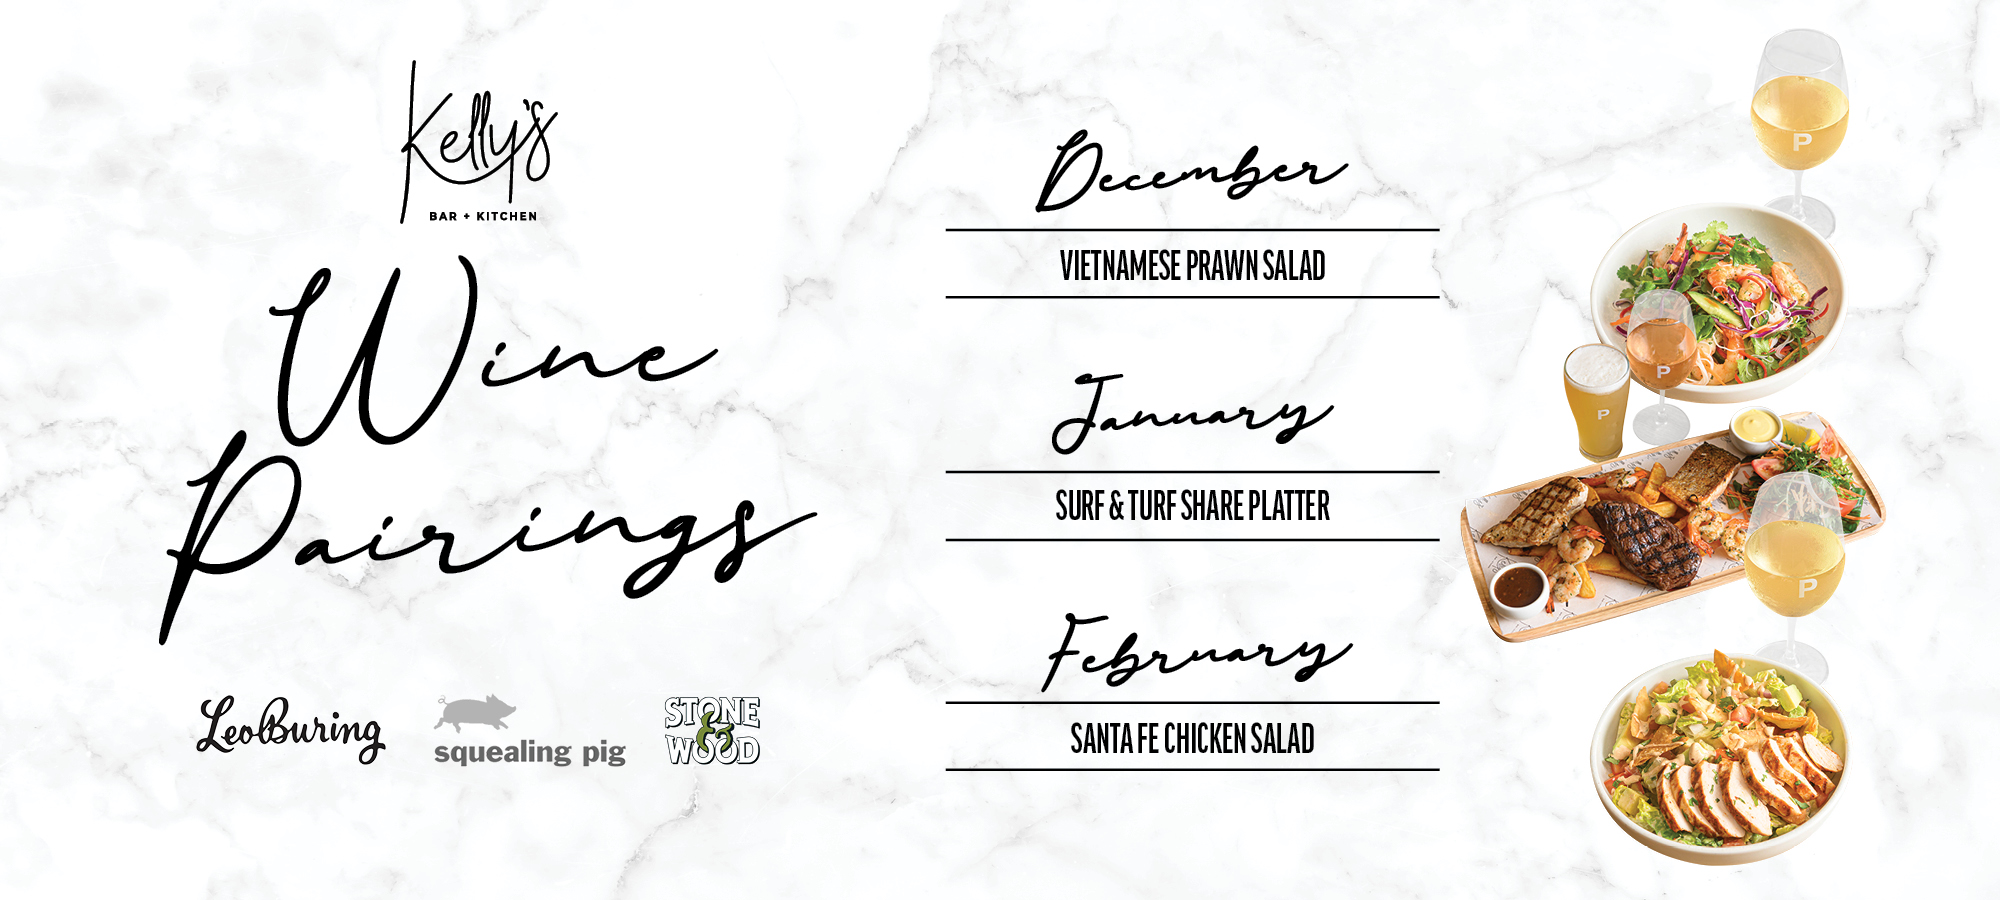 Kelly's
BAR + KITCHEN
Wine
Pairings
Leo Buring
squealing pig
STONE
&
WOOD
December
VIETNAMESE PRAWN SALAD
January
SURF & TURF SHARE PLATTER
February
SANTA FE CHICKEN SALAD
P
P
P
P